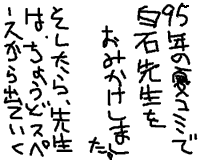 95年の夏コミで
白石先生を
おみかけしました。
そしたら、先生
は、ちょうどスペ
ースから出ていく